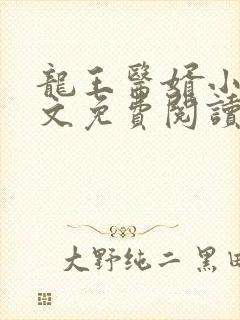 龍王醫婿小
文免費閱讀
大野纯二 黑田